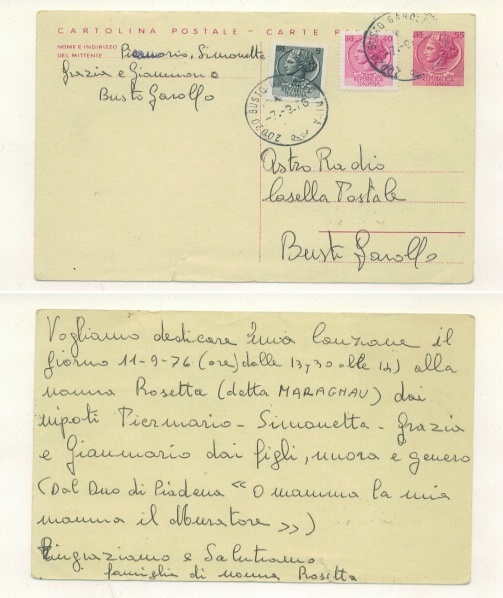 CARTOLINA POSTALE - CARTE
NOME E INDIRIZZO
DEL MITTENTE Piermario, Simonetta
Grazia e Gianmario
Busto Garolfo
40
55
20020 BUSTO
Astro Radio
Casella Postale
Busto Garolfo
Vogliamo dedicare Una Canzone il
giorno 11-9-76 (ore) dalle 13,30 alle 14) alla
nonna Rosetta (detta MARAGNAU) dai
nipoti Piermario - Simonetta - Grazia
e Gianmario dai figli, nuora e genero
(Dal Duo di Piadena “O mamma la mia
mamma il Muratore”)
Ringraziamo e Salutiamo
famiglia di nonna Rosetta